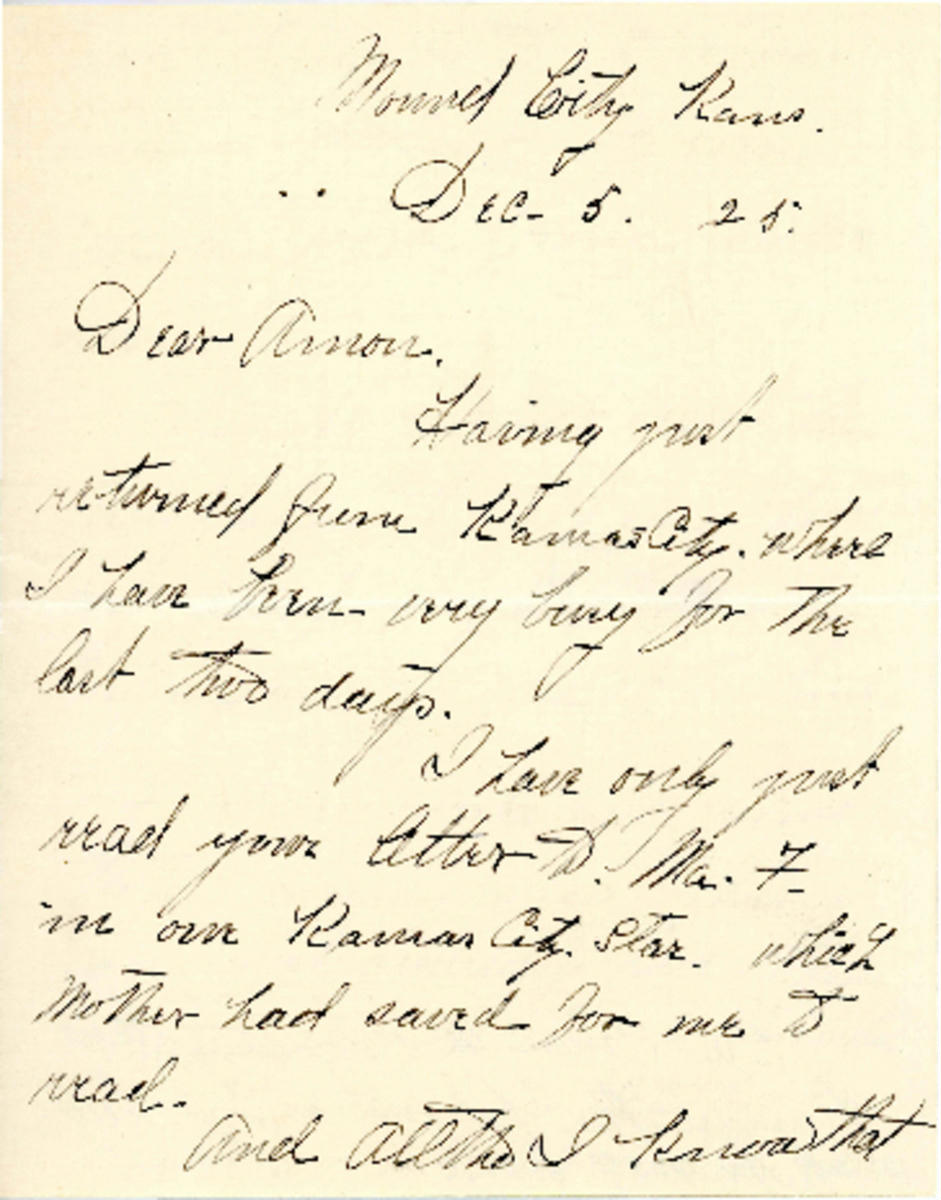 Mound City Kans.
Dec- 5. 25.
Dear Amon.
Having just
returned from Kansas City. where
I have been very busy for the
last two days.
I have only just
read your letter to. Ma.
in our Kansas City. Star. which
Mother had saved for me to
read.
And AllTho I know that